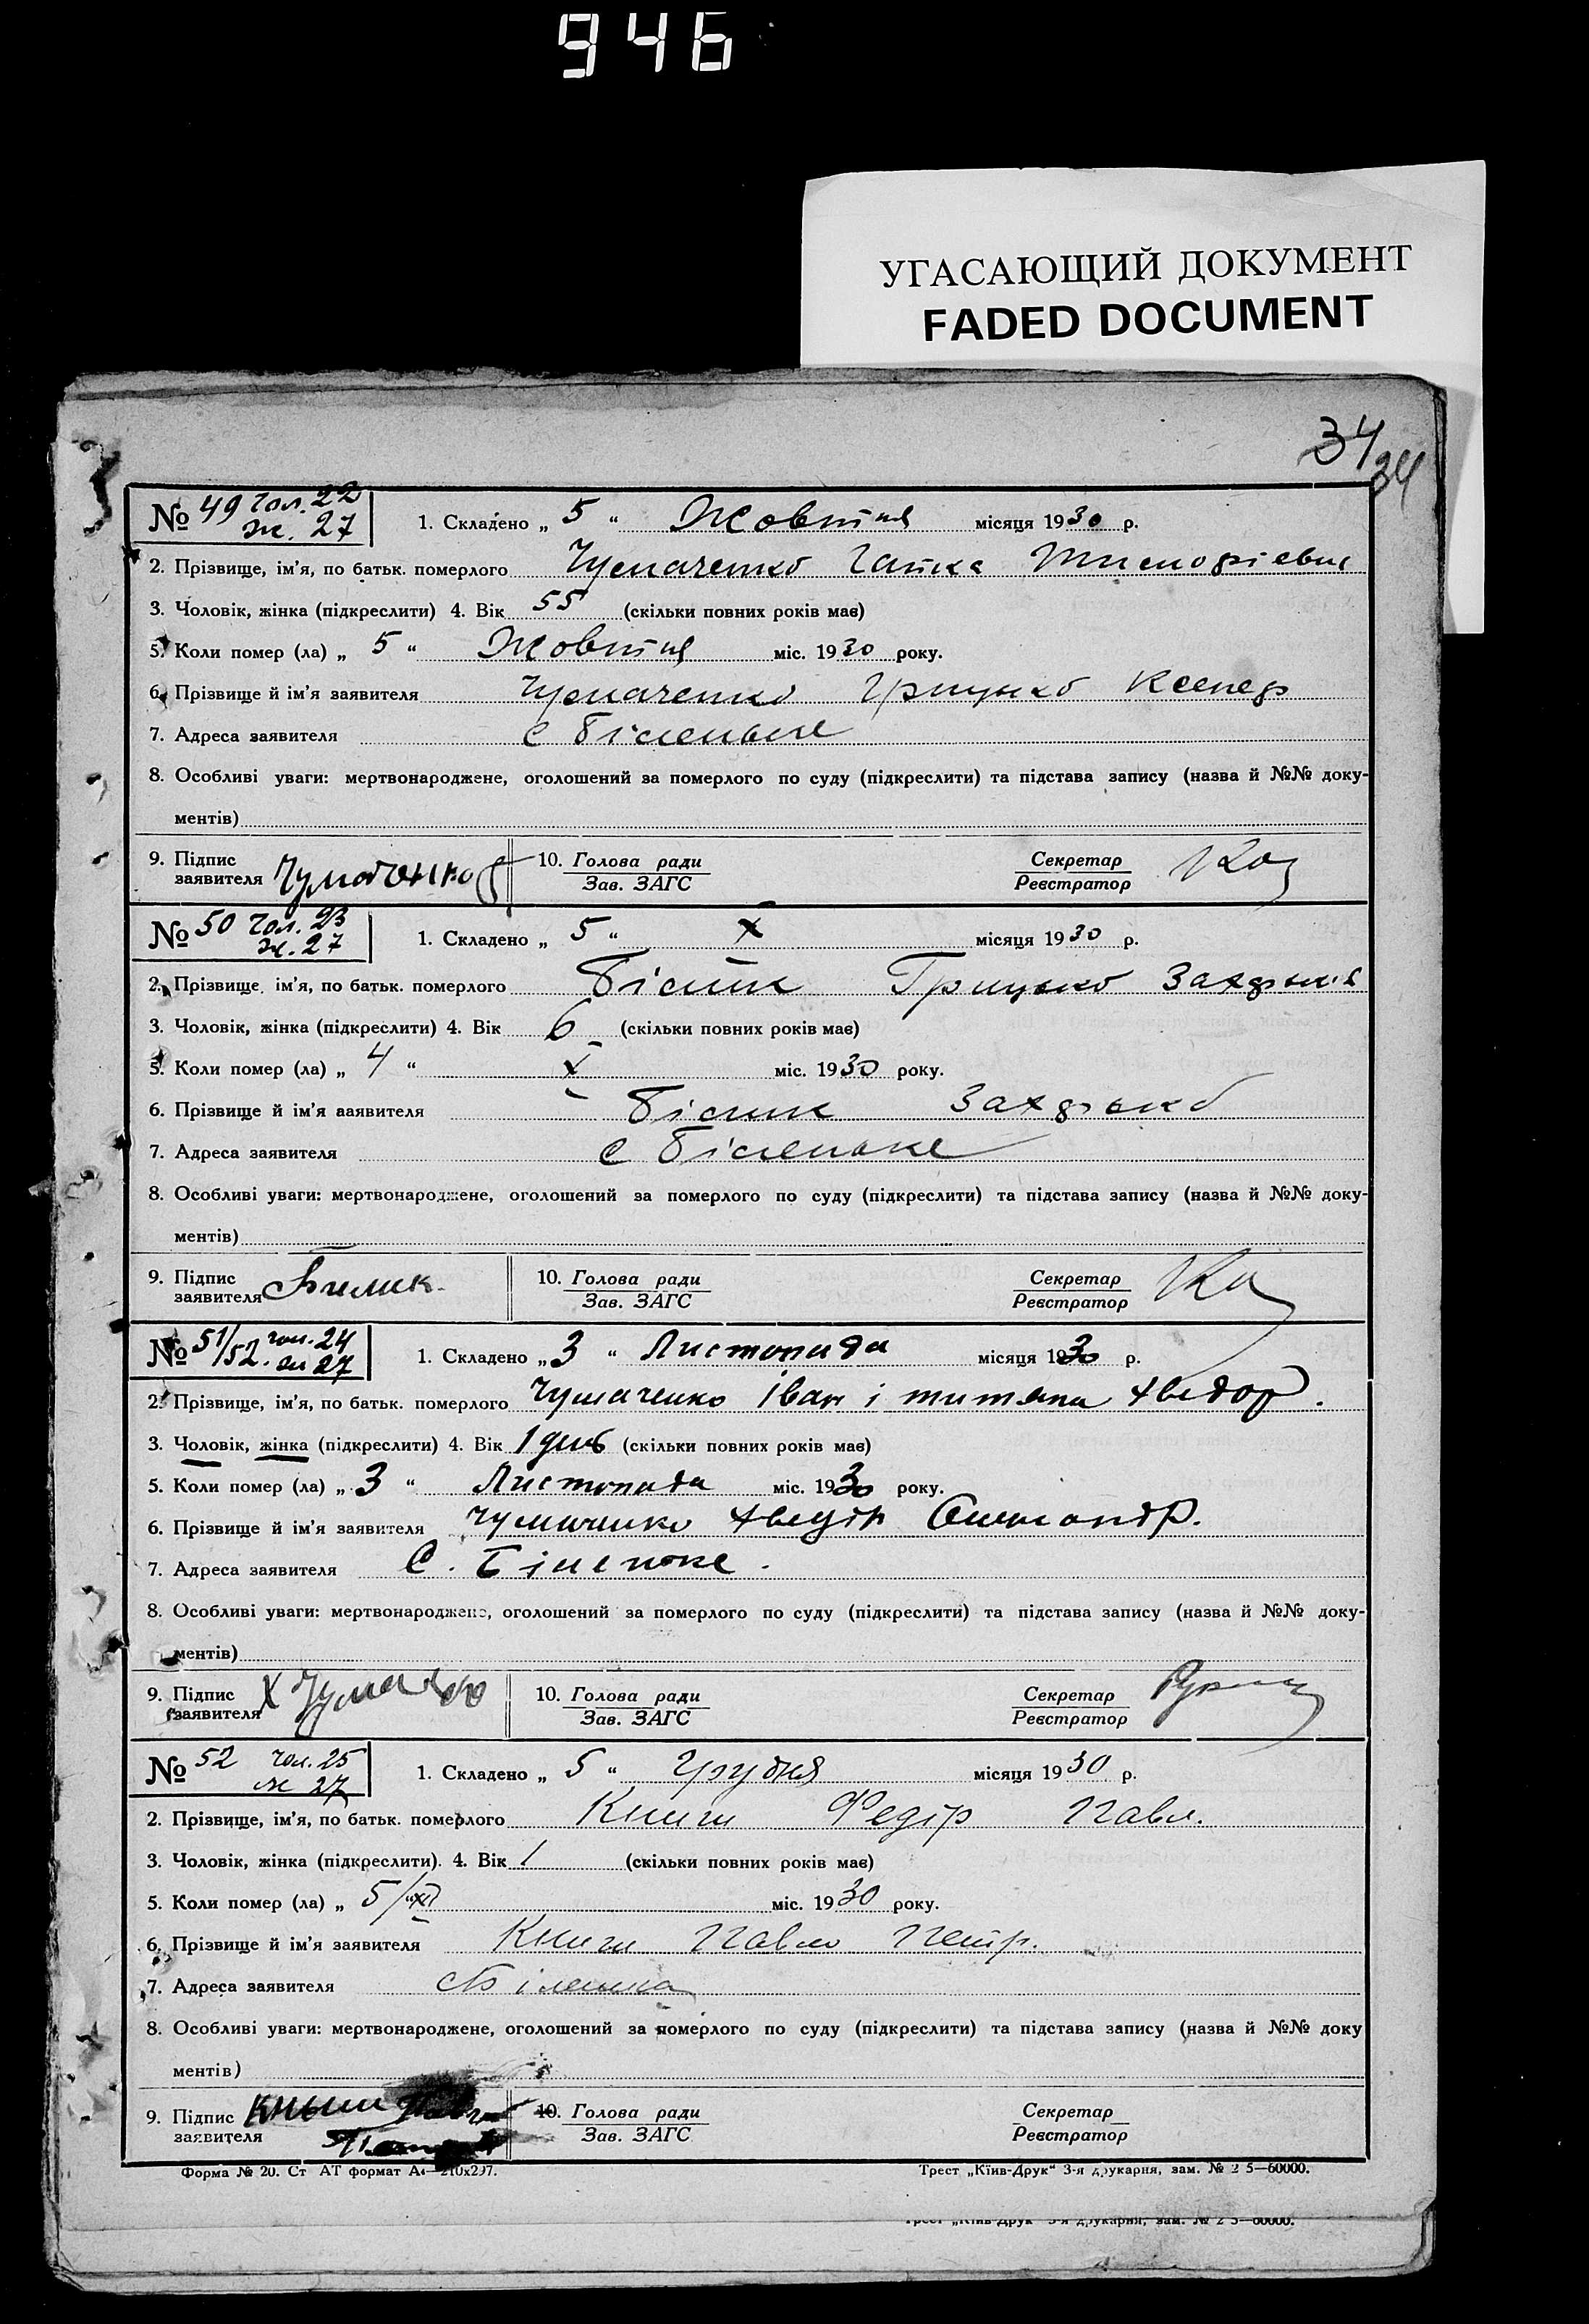 946
УГАСАЮЩИЙ ДОКУМЕНТ
FADED DOCUMENT
34
34
№ 49 чол. 22
ж. 27
1. Складено „ 5 “ Жовтня місяця 1930 р.
2. Прізвище, ім'я, по батьк. померлого Чумаченко Гапка
3. Чоловік, жінка (підкреслити) 4. Вік 55 (скільки повних років має)
5. Коли помер (ла) „ 5 “ Жовтня міс. 1930 року.
6. Прізвище й ім'я заявителя Чумаченко Грицько
7. Адреса заявителя с Біленьке
8. Особливі уваги: мертвонароджене, оголошений за померлого по суду (підкреслити) та підстава запису (назва й №№ доку-
ментів)
9. Підпис заявителя Чумаченко 10. Голова ради Зав. ЗАГС Секретар Реєстратор
№ 50 чол. 23
ж. 27
1. Складено „ 5 “ X місяця 1930 р.
2. Прізвище, ім'я, по батьк. померлого Білик Грицько
3. Чоловік, жінка (підкреслити) 4. Вік 6 (скільки повних років має)
5. Коли помер (ла) „ 4 “ X міс. 1930 року.
6. Прізвище й ім'я ааявителя Білик Захарько
7. Адреса заявителя с Біленьке
8. Особливі уваги: мертвонароджене, оголошений за померлого по суду (підкреслити) та підстава запису (назва й №№ доку-
ментів)
9. Підпис заявителя Билик 10. Голова ради Зав. ЗАГС Секретар Реєстратор
№ 51/52. чол. 24
ж 27
1. Складено „ 3 “ Листопада місяця 1930 р.
2. Прізвище, ім'я, по батьк. померлого Чумаченко Іван і титяна Хведор.
3. Чоловік, жінка (підкреслити) 4. Вік 1 день (скільки повних років має)
5. Коли помер (ла) „ 3 “ Листопада міс. 1930 року.
6. Прізвище й ім'я заявителя Чумаченко Хведір
7. Адреса заявителя С. Біленьке.
8. Особливі уваги: мертвонароджене, оголошений за померлого по суду (підкреслити) та підстава запису (назва й №№ доку-
ментів)
9. Підпис заявителя 10. Голова ради Зав. ЗАГС Секретар Реєстратор
№ 52 чол. 25
ж 27
1. Складено „ 5 “ Грудня місяця 1930 р.
2. Прізвище, ім'я, по батьк. померлого Книш Федір Павл.
3. Чоловік, жінка (підкреслити). 4. Вік 1 (скільки повних років має)
5. Коли помер (ла) „ 5/XII міс. 1930 року.
6. Прізвище й ім'я заявителя Книш Павло Петр.
7. Адреса заявителя с Біленька
8. Особливі уваги: мертвонароджене, оголошений за померлого по суду (підкреслити) та підстава запису (назва й №№ доку
ментів)
9. Підпис заявителя Кныш 10. Голова ради Зав. ЗАГС Секретар Реєстратор
Форма № 20. Ст АТ формат А4—210х297. Трест „Київ-Друк“ 3-я друкарня, зам. № 2 5—60000.
Трест „Київ-Друк“ 3-я друкарня, зам. № 2 5—60000.